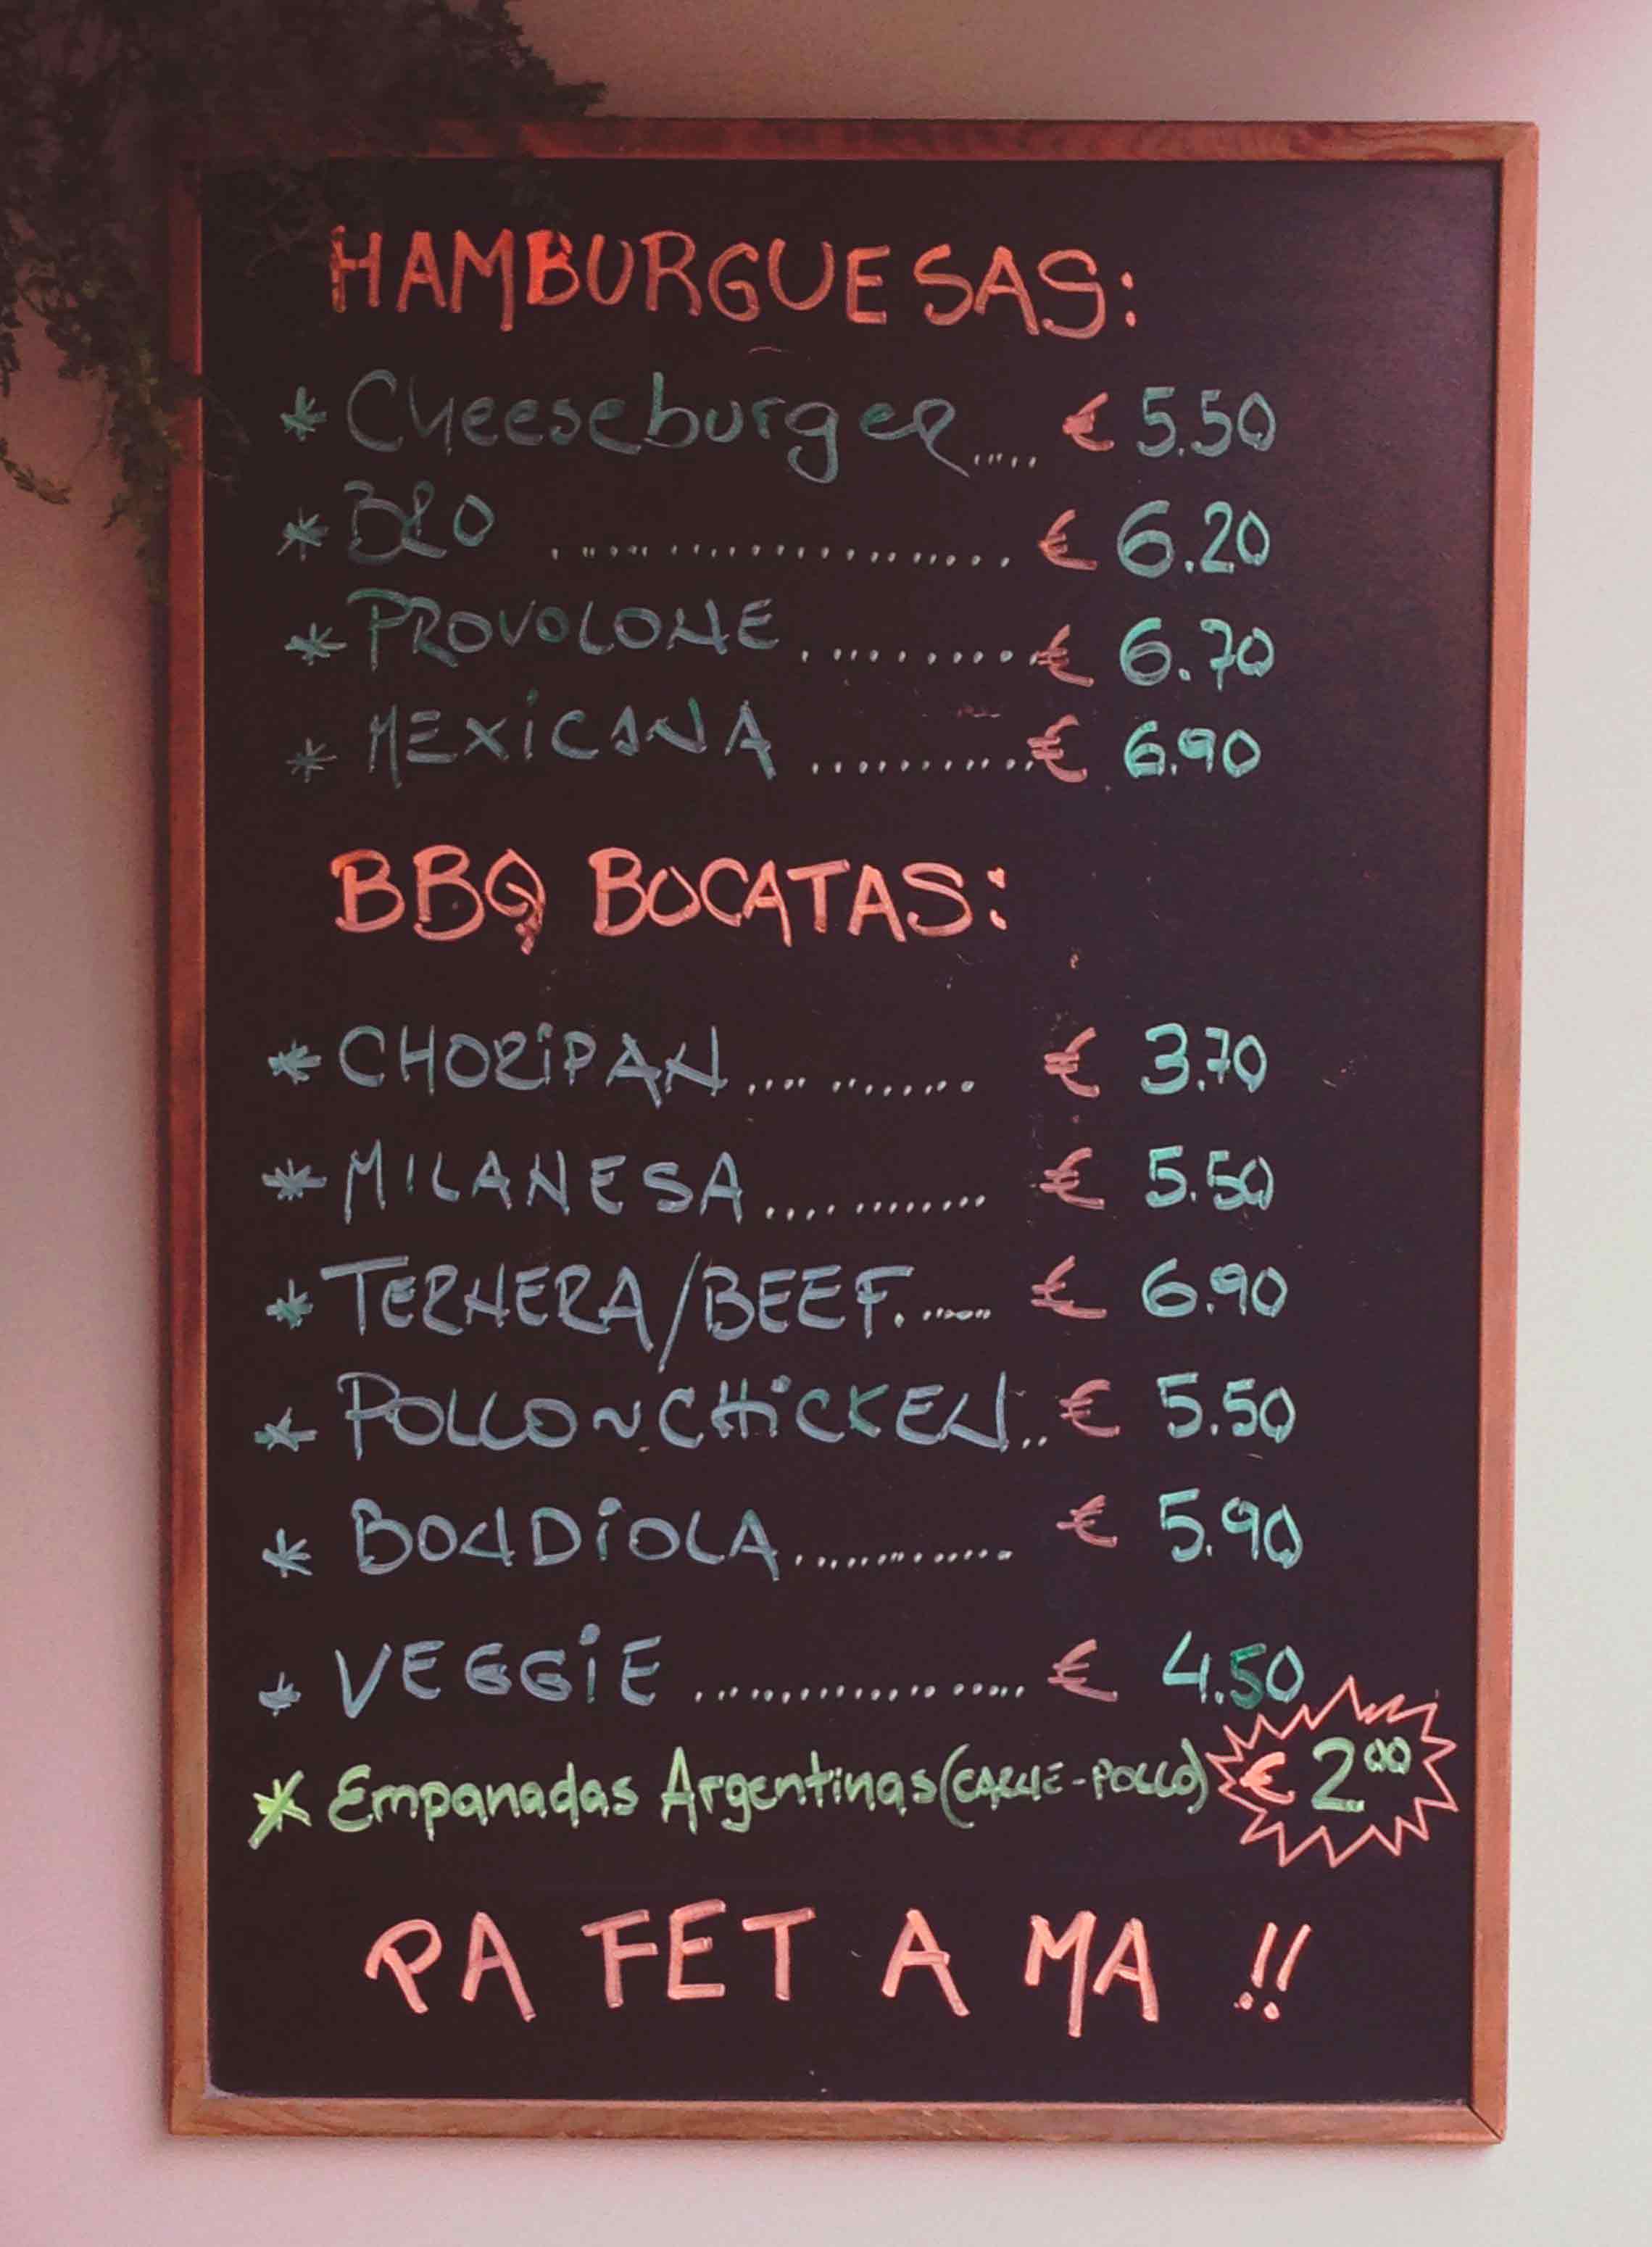 HAMBURGUESAS:
* Cheeseburger..... € 5.50
* BRO ........................ € 6.20
* PROVOLONE ............ € 6.70
* MEXiCANA ............ € 6.90
BBQ BOCATAS:
* CHORiPAN ............. € 3.70
* MILANESA ............. € 5.50
* TERNERA/BEEF....... € 6.90
* POLLO~CHiCKEN... € 5.50
* BONDiOLA ............. € 5.90
* VEGGiE .................... € 4.50
* Empanadas Argentinas (CARNE-POLLO) € 2.00
PA FET A MA !!